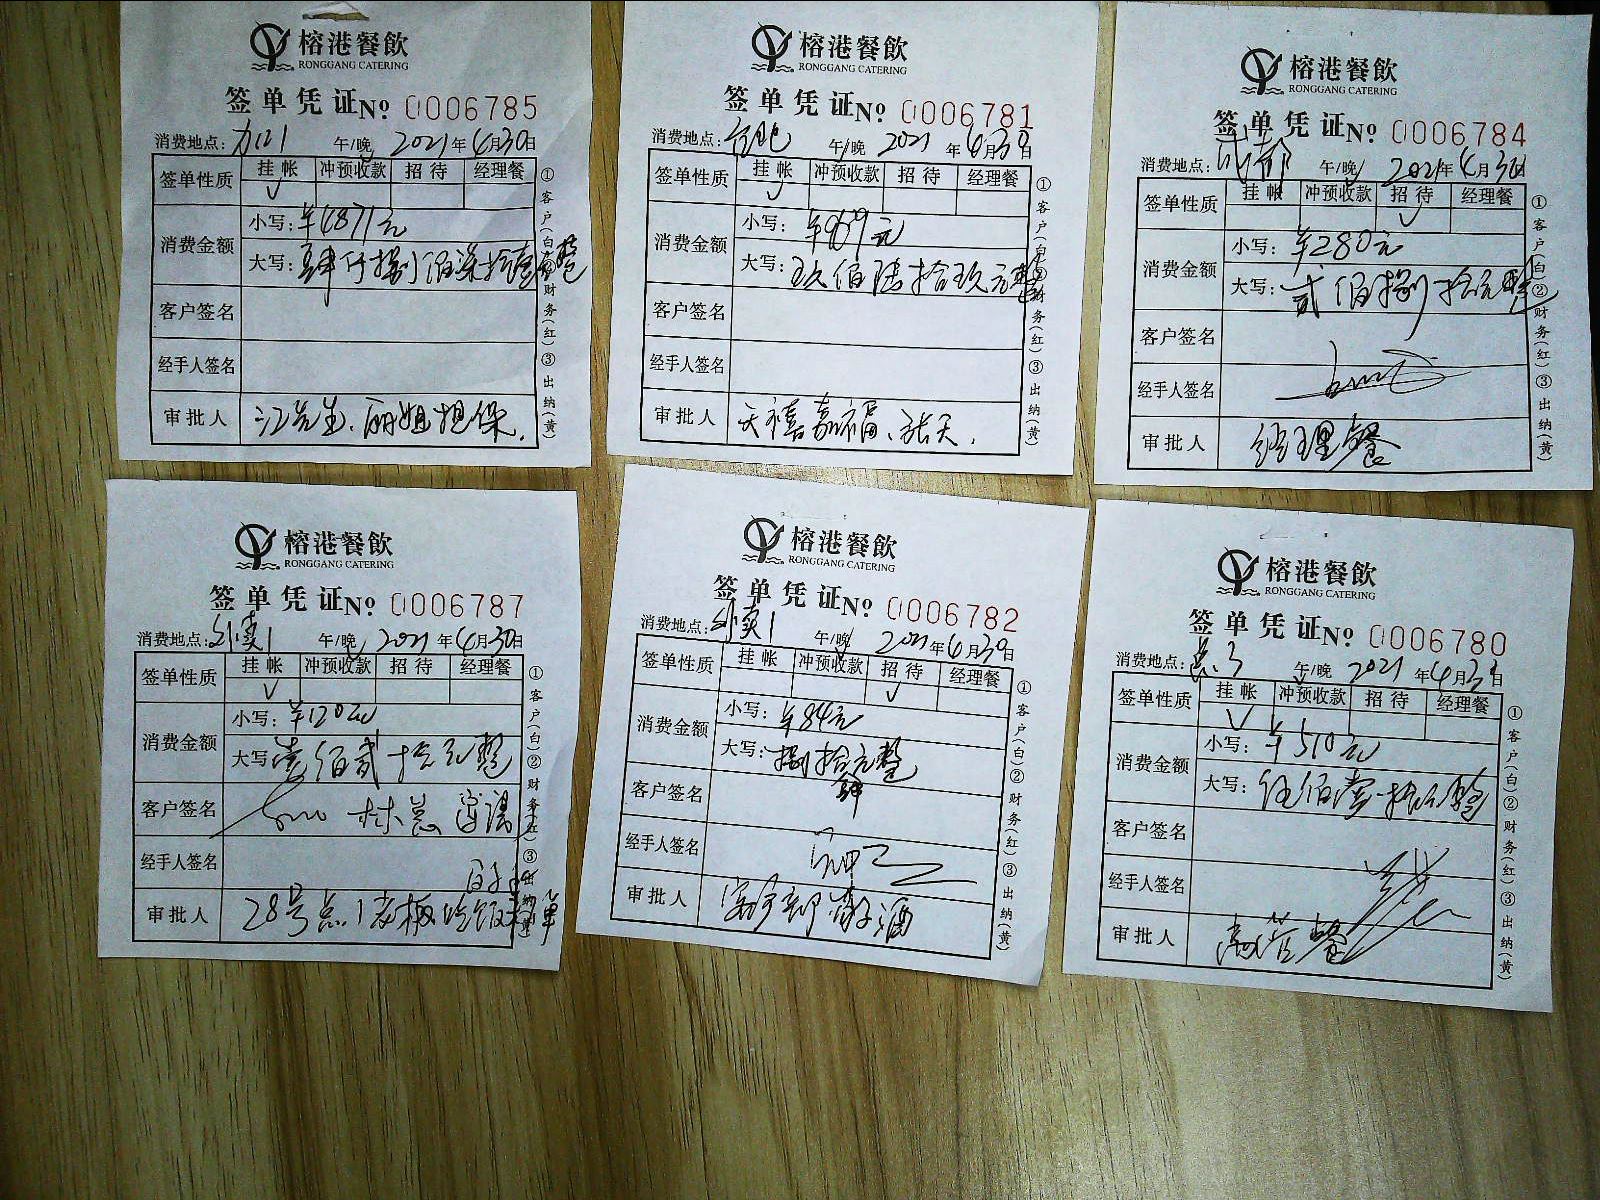 榕港餐飲
RONGGANG CATERING
签单凭证 No 0006785
消费地点: 午/晚 2021年4月30日
签单性质 挂帐 冲预收款 招待 经理餐
✓
消费金额 小写: ¥4871元
大写: 肆仟捌佰柒拾壹元整
客户签名
经手人签名
审批人 江先生、丽姐担保.
①客户(白)②财务(红)③出纳(黄)
榕港餐飲
RONGGANG CATERING
签单凭证 No 0006781
消费地点: 合肥 午/晚 2021年4月30日
签单性质 挂帐 冲预收款 招待 经理餐
✓
消费金额 小写: ¥969元
大写: 玖佰陆拾玖元整
客户签名
经手人签名
审批人 天禧嘉福、张天.
①客户(白)②财务(红)③出纳(黄)
榕港餐飲
RONGGANG CATERING
签单凭证 No 0006784
消费地点: 成都 午/晚 2021年4月30日
签单性质 挂帐 冲预收款 招待 经理餐
✓
消费金额 小写: ¥280元
大写: 贰佰捌拾元整
客户签名
经手人签名
审批人 经理餐
①客户(白)②财务(红)③出纳(黄)
榕港餐飲
RONGGANG CATERING
签单凭证 No 0006787
消费地点: 外卖1 午/晚 2021年4月30日
签单性质 挂帐 冲预收款 招待 经理餐
✓
消费金额 小写: ¥120元
大写: 壹佰贰拾元整
客户签名 林总
经手人签名
审批人 28号点1老板
①客户(白)②财务(红)③出纳(黄)
榕港餐飲
RONGGANG CATERING
签单凭证 No 0006782
消费地点: 外卖1 午/晚 2021年4月30日
签单性质 挂帐 冲预收款 招待 经理餐
✓
消费金额 小写: ¥84元
大写: 捌拾元整
肆
客户签名
经手人签名
审批人
①客户(白)②财务(红)③出纳(黄)
榕港餐飲
RONGGANG CATERING
签单凭证 No 0006780
消费地点: 午/晚 2021年4月30日
签单性质 挂帐 冲预收款 招待 经理餐
✓
消费金额 小写: ¥510元
大写: 伍佰壹拾元整
客户签名
经手人签名
审批人 高管餐
①客户(白)②财务(红)③出纳(黄)